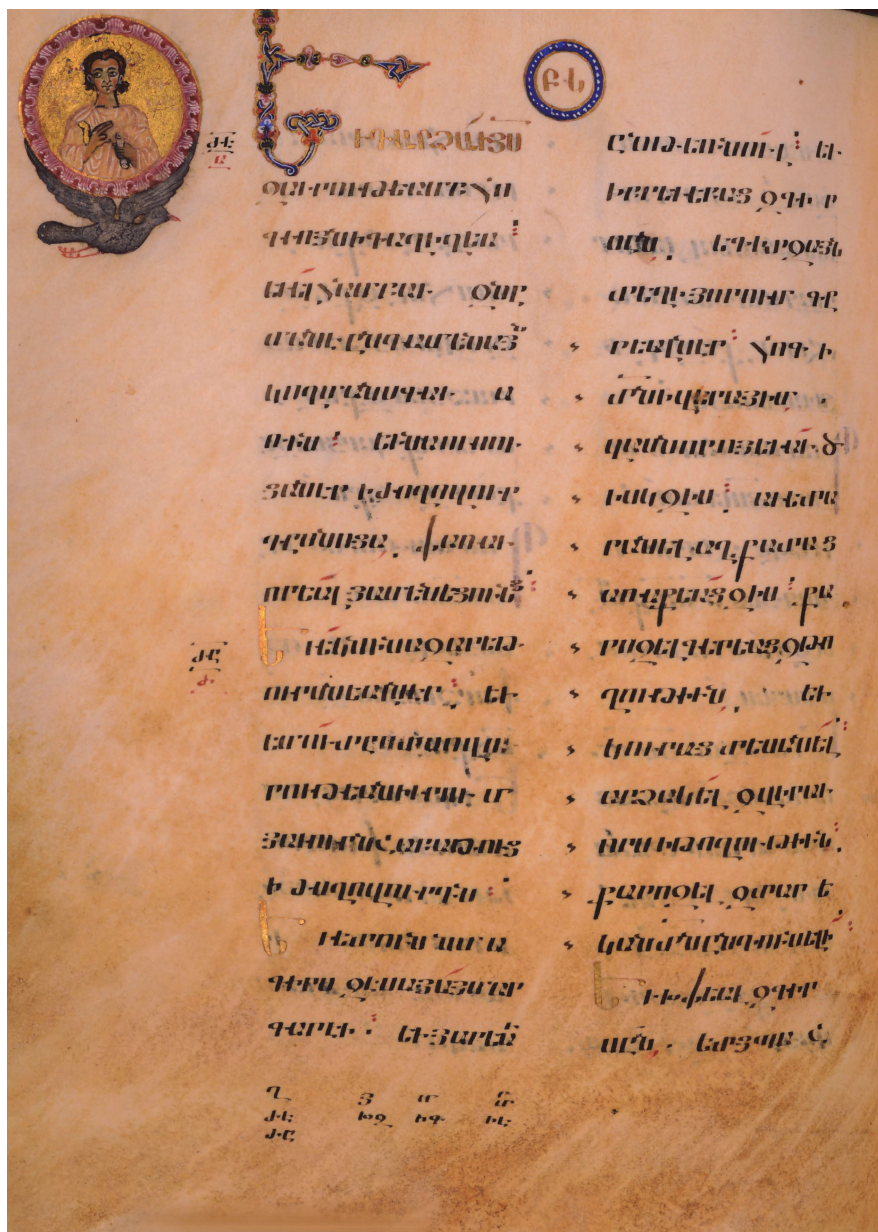 ԲՆ
Եւ դարձաւ յս
ԺԷ
զաւրութեամբ հո
գւոյն ի գալիլեա։
եւ ել համբաւ զնը
մանէ ընդ ամենայն
կողմանս գաւա
ռին։ եւ ինքն ուսու
ցանէր ի ժողովուր
դս նոցա, փառաւ
որեալ յամենեցունց։
Եւ եկն ի նազարեթ
ԺԸ
ուր սնեալն էր. եւ
եմուտ ըստ սովո
րութեան իւրում
յաւուր շաբաթուց
ի ժողովուրդն։
Եւ ետուն նմա
գիրս զեսայայ մար
գարէի. եւ յարեաւ
ընթեռնուլ։ եւ
իբրեւ եբաց զգիր
սն. եգիտ զայն
տեղի յորում գր
եալն էր։ հոգի
տն ի վերայ իմ.
վասն որոյ եւ աւծ
իսկ զիս։ աւետա
րանել աղքատաց
առաքեաց զիս։ քա
րոզել գերեաց զթո
ղութի. եւ
կուրաց տեսանել։
արձակել զվիրա
որս ի թողութի։
քարոզել զտարե
կան տն ընդունելի։
Եւ խփեալ զգիր
սն. ետ ցպաշ
Ղ Յ Մ
ԺԷ ԽԶ ԻԳ ԻԷ
ԺԸ